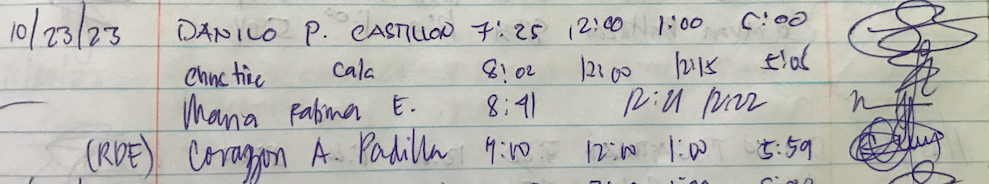 10/23/23 DANILO P. CASTILLON 7:25 12:00 1:00 5:00
Christine Cala 8:02 12:00 12:15 5:06
Maria Fatima E. 8:41 12:21 12:22
(RDE) Corazon A. Padilla 9:00 12:00 1:00 5:59